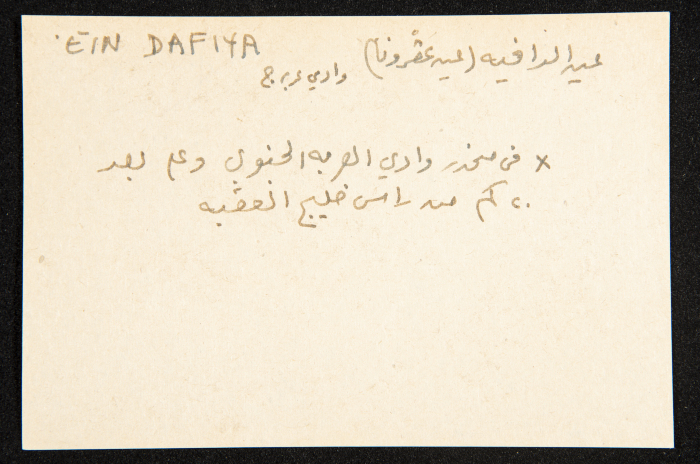 'EIN DAFIYA
عين الدافيه (عين عفرونا)
وادي عربه ج
x في منحدر وادي العربه الجنوبي وعلى بعد
٢٠ كم من راس خليج العقبه